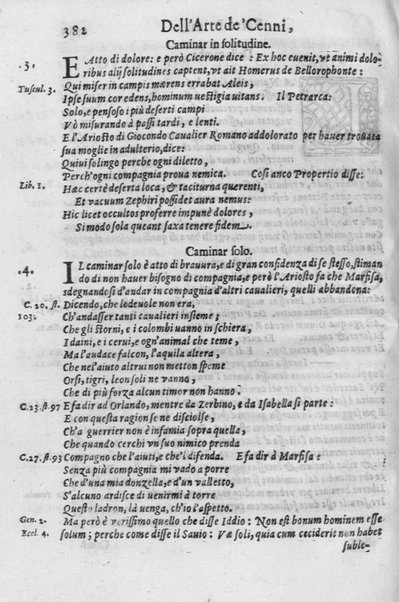 382 Dell'Arte de' Cenni,
Caminar in solitudine.
.3. E Atto di dolore: e però Cicerone dice : Ex hoc euenit, vt animi dolo-
ribus alij solitudines captent, vt ait Homerus de Bellorophonte :
Tuscul. 3. Qui miser in campis mærens errabat Aleis,
Ipse suum cor edens, hominum uestigia uitans. Il Petrarca:
Solo, e pensoso i più deserti campi
Vò misurando à passi tardi, e lenti.
E l'Ariosto di Giocondo Caualier Romano addolorato per hauer trouata
sua moglie in adulterio, dice:
Quiui solingo perche ogni diletto,
Perch'ogni compagnia proua nemica. Così anco Propertio disse:
Lib. 1. Hæc certè deserta loca, & taciturna querenti,
Et vacuum Zephiri possidet aura nemus:
Hic licet occultos proferre impunè dolores,
Si modo sola queant saxa tenere fidem.
Caminar solo.
.4. IL caminar solo è atto di brauura, e di gran confidenza di se stesso, stiman
do di non hauer bisogno di compagnia, e però l'Ariosto fa che Marfisa,
sdegnandosi d'andar in compagnia d'altri caualieri, quelli abbandona:
C. 20. st. Dicendo, che lodeuole non era,
103. Ch'andasser tanti caualieri insieme ;
Che gli storni, e i colombi uanno in schiera,
I daini, e i cerui, e ogn'animal che teme,
Ma l'audace falcon, l'aquila altera,
Che nel'aiuto altrui non metton speme
Orsi, tigri, leon soli ne vanno,
Che di più forza alcun timor non hanno.
C.23. st. 97 E fa dir ad Orlando, mentre da Zerbino, e da Isabella si parte :
E con questa ragion se ne disciolse,
Ch'a guerrier non è infamia sopra quella,
Che quando cerchi vn suo nimico prenda
C.27. st. 93 Compagno che l'aiuti, e che'l difenda. E fa dir à Marfisa:
Senza più compagnia mi vado a porre
Che d'una mia donzella, e d'un valletto,
S'alcuno ardisce di uenirmi à torre
Questo ladron, là uenga, ch'io l'aspetto.
Gen. 2. Ma però è verissimo quello che disse Iddio : Non est bonum hominem esse
Eccl. 4. solum ; perche come disse il Sauio : Væ soli, quia cum ceciderit non habet
suble-